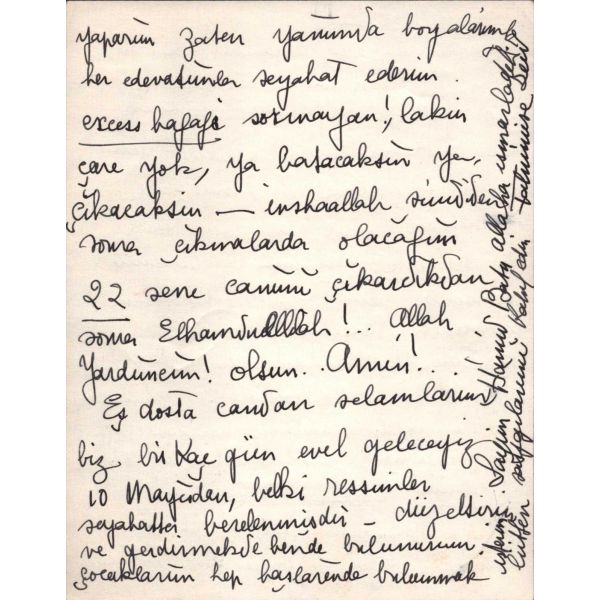 yaparım zaten yanımda boyalarımla
her edevatımla seyahat ederim.
excess bagajı sormayın!, lakin
çare yok, ya batacaksın ya,
çıkacaksın — inshaallah şimdiden
sonra çıkmalarda olacağım
22 sene canımı çıkardıkdan
sonra Elhamdulllah!... Allah
Yardımcım! olsun.. Amin!..
Eş dosta candan selamlarım
biz bir kaç gün evel geleceyiz
10 Mayısdan, belki ressimler
seyahattei berelenmisdir _ düzeltirim
ve gerdirmekde bende bulunurum.
çocaklarım hep başlarında bulunmak
isterim, Sayın Hamid Bey Allaha ısmarladık
lütfen saygılarımı kabul edin